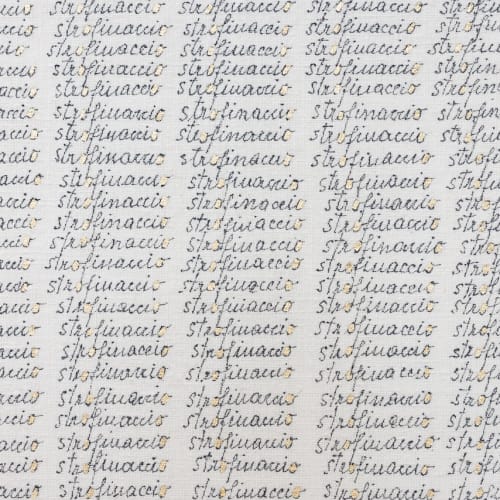 accio strofinaccio strofinaccio strofinaccio strofin
accio strofinaccio strofinaccio strofinaccio strofin
accio strofinaccio strofinaccio strofinaccio strofin
accio strofinaccio strofinaccio strofinaccio strofin
accio strofinaccio strofinaccio strofinaccio strofin
accio strofinaccio strofinaccio strofinaccio strofin
accio strofinaccio strofinaccio strofinaccio strofin
accio strofinaccio strofinaccio strofinaccio strofin
accio strofinaccio strofinaccio strofinaccio strofin
accio strofinaccio strofinaccio strofinaccio strofin
accio strofinaccio strofinaccio strofinaccio strofin
accio strofinaccio strofinaccio strofinaccio strofin
accio strofinaccio strofinaccio strofinaccio strofi
accio strofinaccio strofinaccio strofinaccio strofi
accio strofinaccio strofinaccio strofinaccio strofi
accio strofinaccio strofinaccio strofinaccio strofi
accio strofinaccio strofinaccio strofinaccio strofi
accio strofinaccio strofinaccio strofinaccio strofi
accio strofinaccio strofinaccio strofinaccio strofi
accio strofinaccio strofinaccio strofinaccio strofi
accio strofinaccio strofinaccio strofinaccio strofi
accio strofinaccio strofinaccio strofinaccio strofi
accio strofinaccio strofinaccio strofinaccio strofi